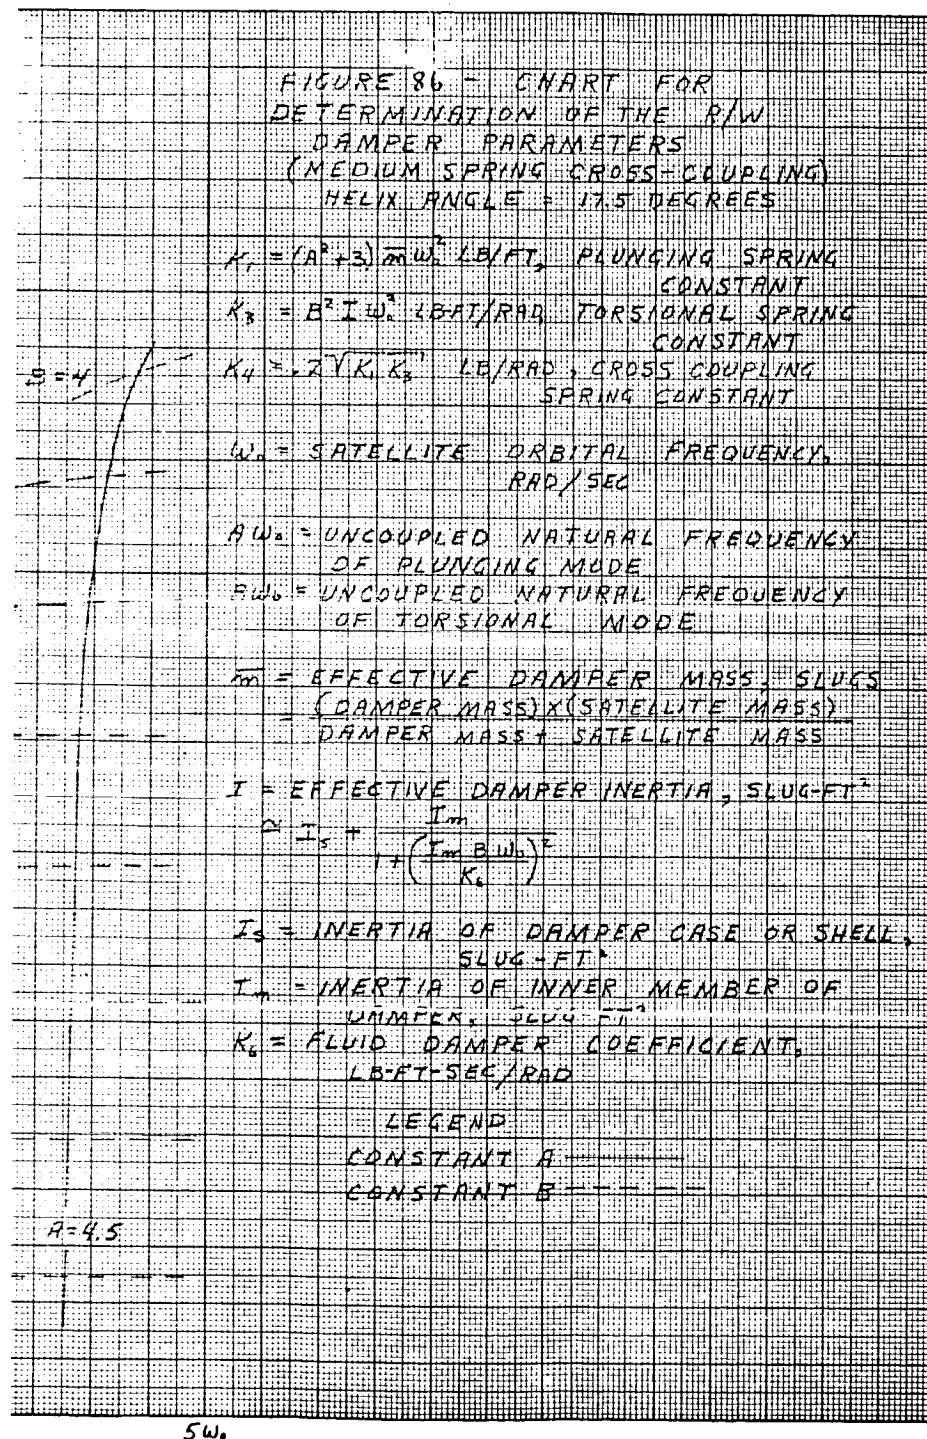 FIGURE 86 - CHART FOR
DETERMINATION OF THE R/W
DAMPER PARAMETERS
(MEDIUM SPRING CROSS-COUPLING)
HELIX ANGLE = 17.5 DEGREES
K₁ = (A² + 3) m̅ ω₀² LB/FT, PLUNGING SPRING
CONSTANT
K₃ = B² I ω₀² LB-FT/RAD TORSIONAL SPRING
CONSTANT
K₄ = .2 √K₁ K₃ LB/RAD, CROSS COUPLING
SPRING CONSTANT
B = 4
ω₀ = SATELLITE ORBITAL FREQUENCY,
RAD/SEC
Aω₀ = UNCOUPLED NATURAL FREQUENCY
OF PLUNGING MODE
Bω₀ = UNCOUPLED NATURAL FREQUENCY
OF TORSIONAL MODE
m̅ = EFFECTIVE DAMPER MASS, SLUGS
= (DAMPER MASS) X (SATELLITE MASS)
DAMPER MASS + SATELLITE MASS
I = EFFECTIVE DAMPER INERTIA, SLUG-FT²
≅ Iₛ + Iₘ
1 + (Iₘ B ω₀ / K₆)²
Iₛ = INERTIA OF DAMPER CASE OR SHELL,
SLUG-FT²
Iₘ = INERTIA OF INNER MEMBER OF
DAMPER, SLUG-FT²
K₆ = FLUID DAMPER COEFFICIENT,
LB-FT-SEC/RAD
LEGEND
CONSTANT A
CONSTANT B
A = 4.5
5ω₀